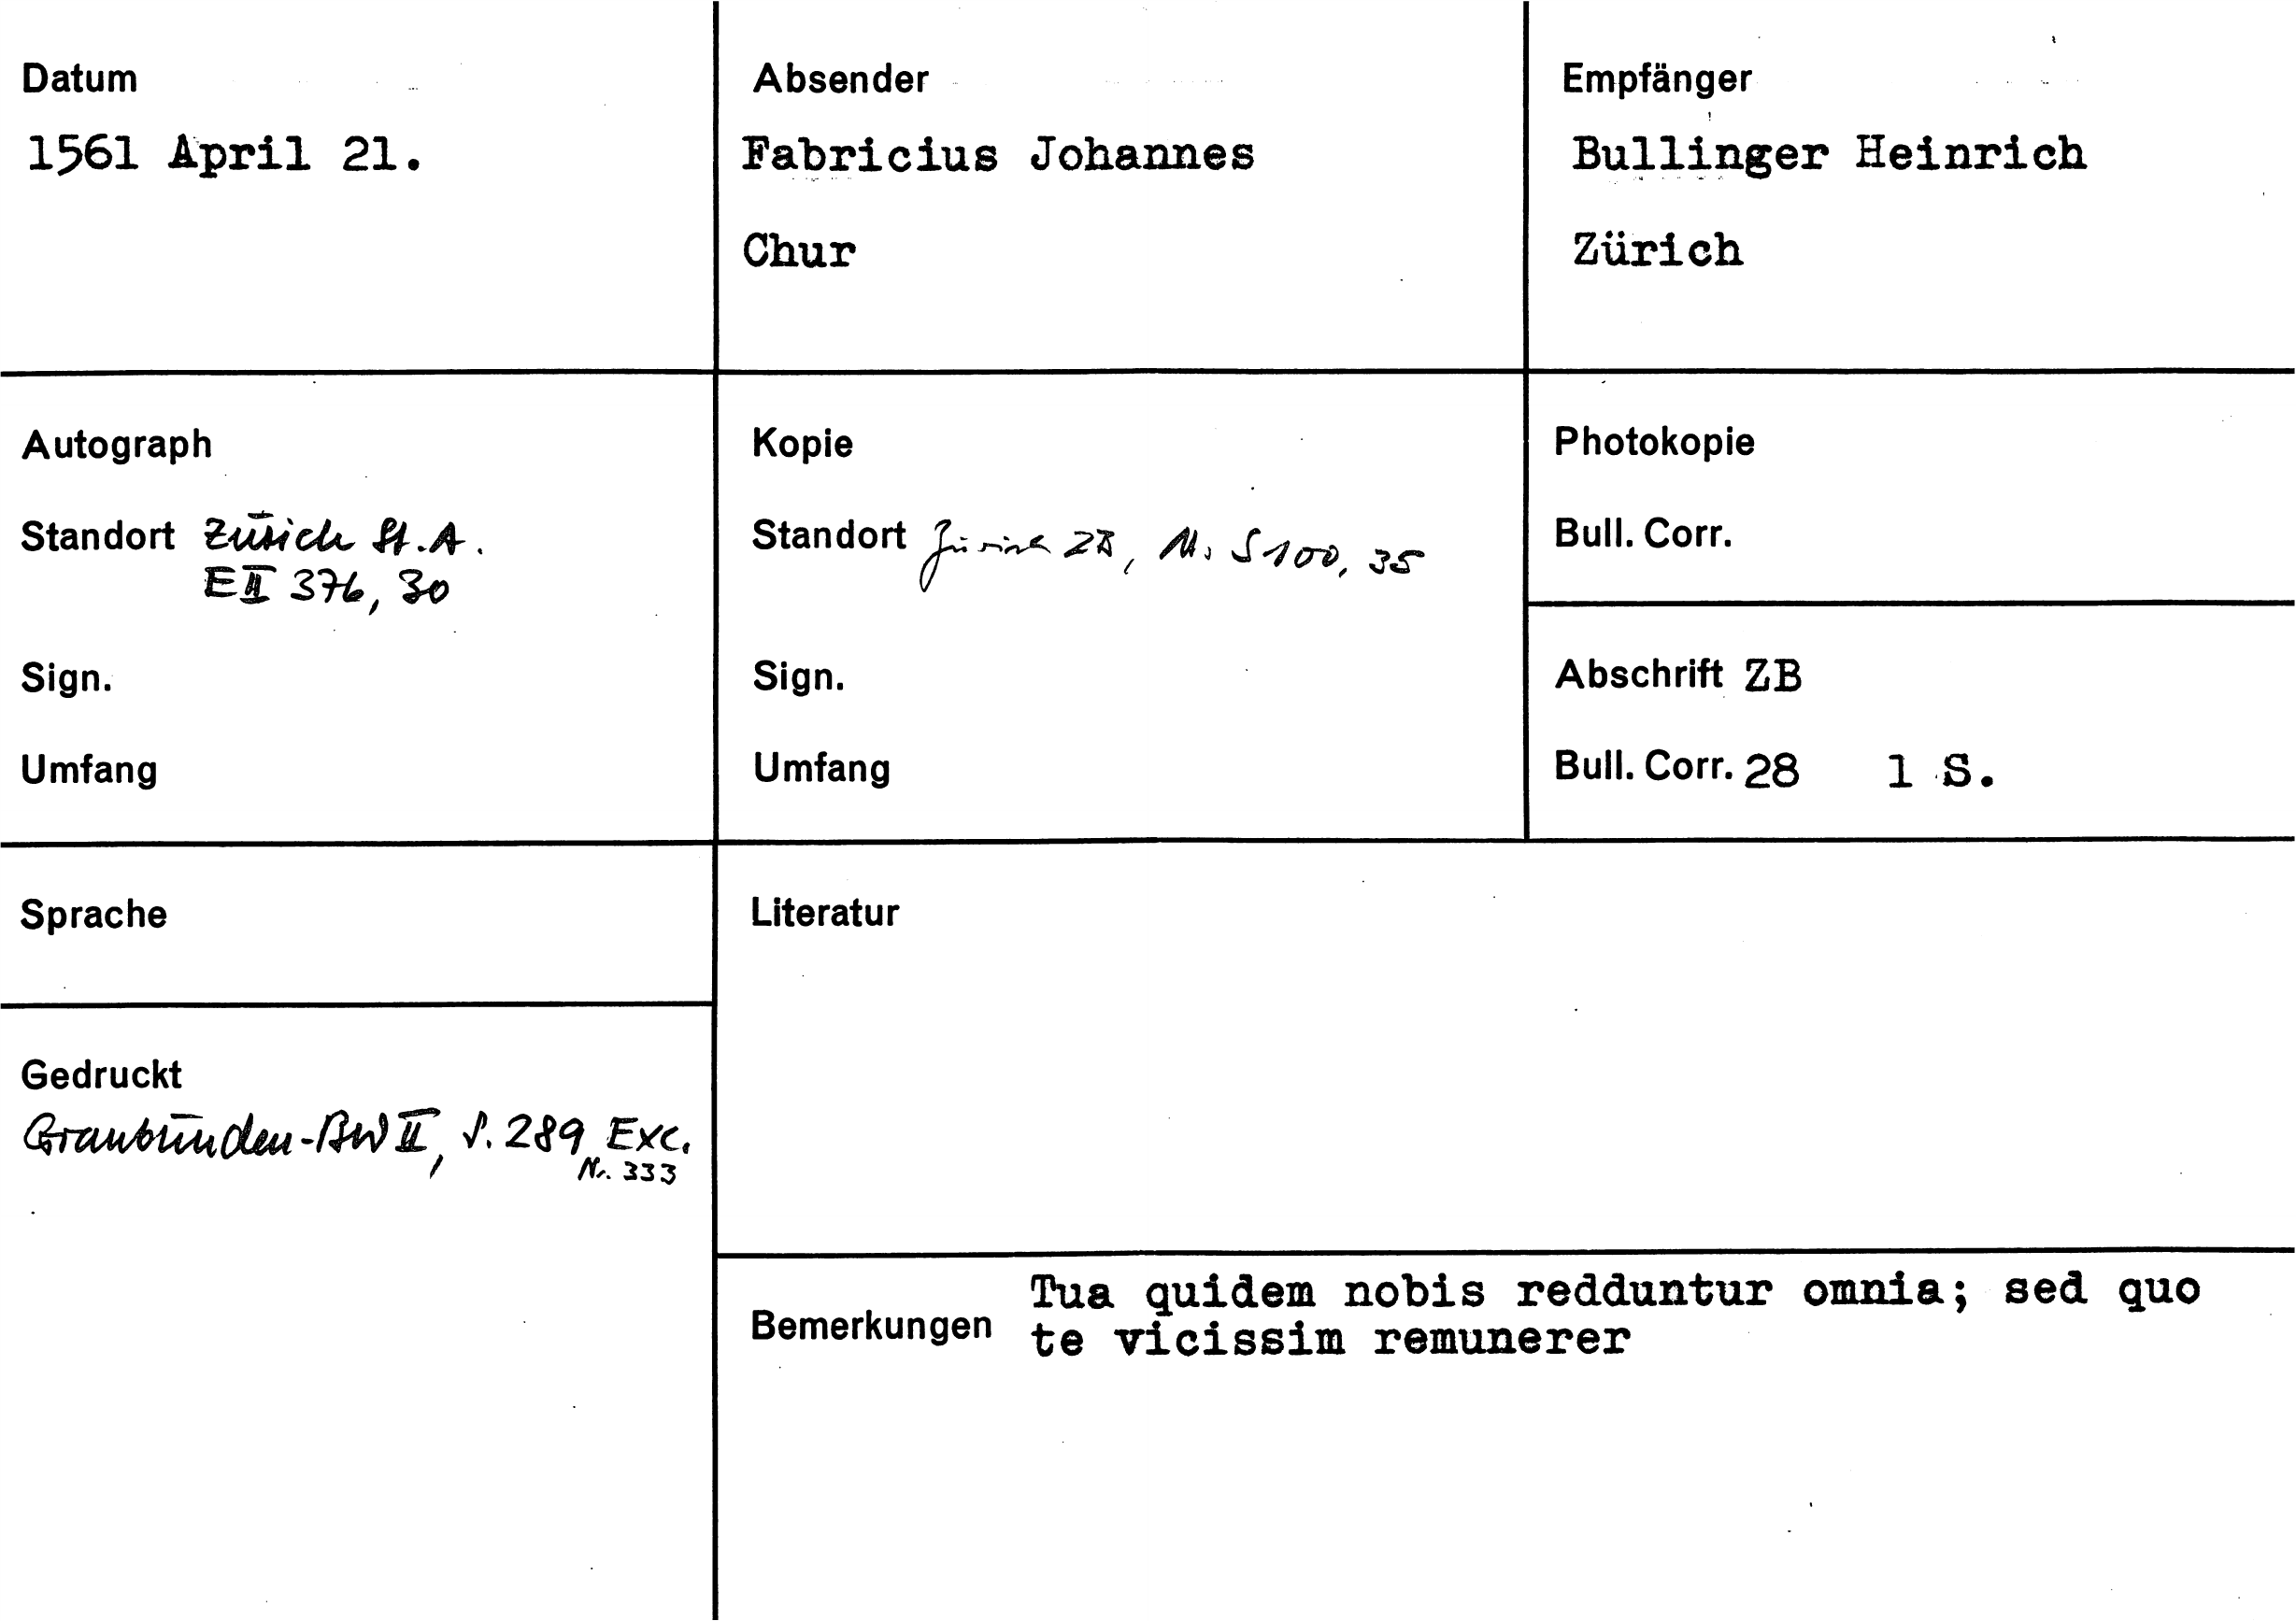 Datum
1561 April 21.
Absender
Fabricius Johannes
Chur
Empfänger
Bullinger Heinrich
Zürich
Autograph
Standort Zürich St.A.
E II 376, 30
Sign.
Umfang
Kopie
Standort Zürich ZB, Ms S 100, 35
Sign.
Umfang
Photokopie
Bull. Corr.
Abschrift ZB
Bull. Corr. 28 1 S.
Sprache
Gedruckt
Graubünden-BW II, S. 289 Exc.
Nr. 333
Literatur
Bemerkungen Tua quidem nobis redduntur omnia; sed quo
te vicissim remunerer